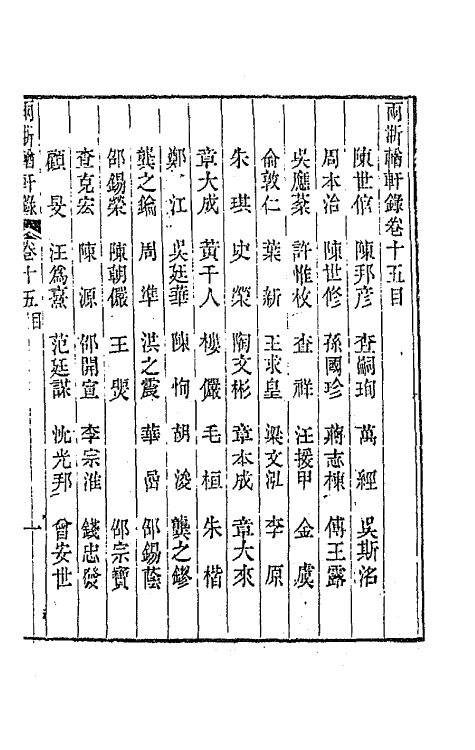 兩浙輶軒錄卷十五目
陳世倌　陳邦彥　查嗣珣　萬經　吳斯洺
周本治　陳世修　孫國珍　蔣志棟　傅王露
吳應棻　許惟枚　查祥　汪援甲　金虞
俞敦仁　葉新　王求皇　梁文泓　李原
朱琪　史榮　陶文彬　章本成　章大來
章大成　黃千人　樓儼　毛桓　朱楷
鄭江　吳廷華　陳恂　胡浚　龔之鏐
龔之鑰　周準　洪之震　華嵒　邵錫蔭
邵錫榮　陳朝儼　王　邵宗寶
查克宏　陳源　邵開宣　李宗淮　錢忠發
顧旻　汪爲熹　范廷謀　沈光邦　曾安世
兩浙輶軒錄　卷十五目　一